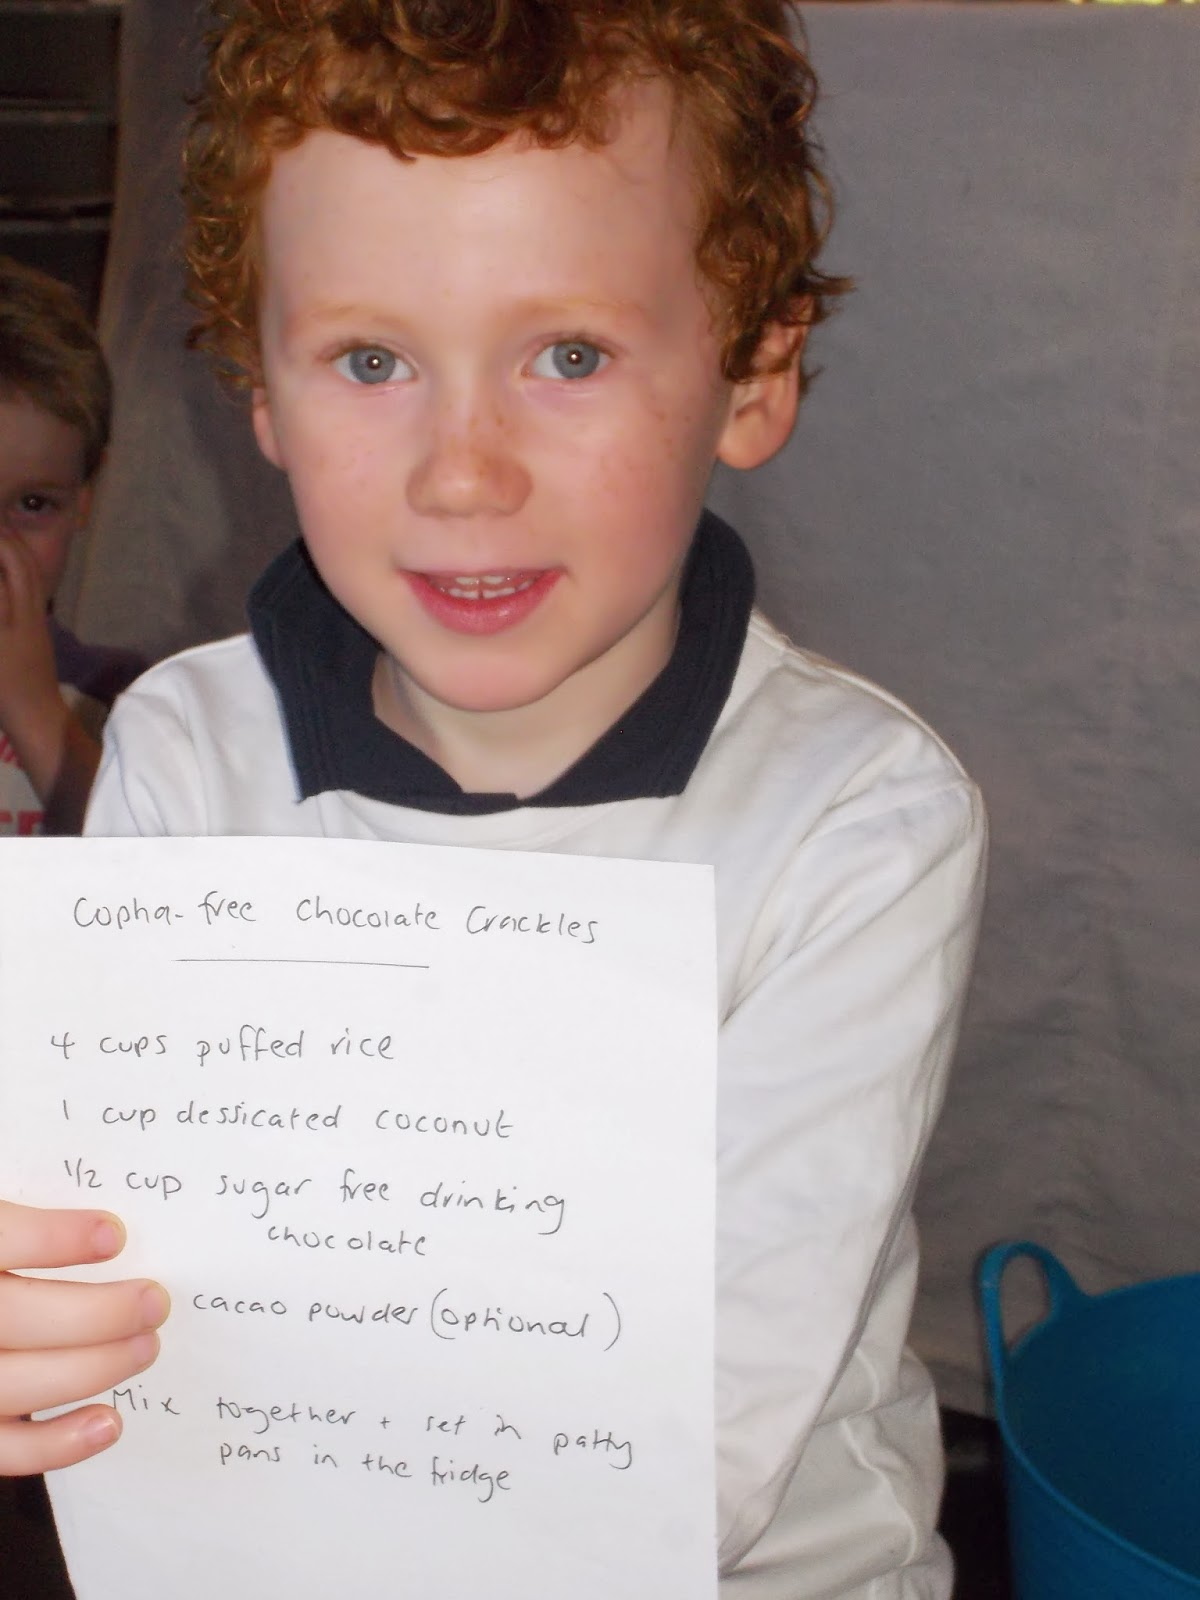 Copha-free Chocolate Crackles
4 cups puffed rice
1 cup dessicated coconut
1/2 cup sugar free drinking
chocolate
cacao powder (optional)
Mix together + set in patty
pans in the fridge